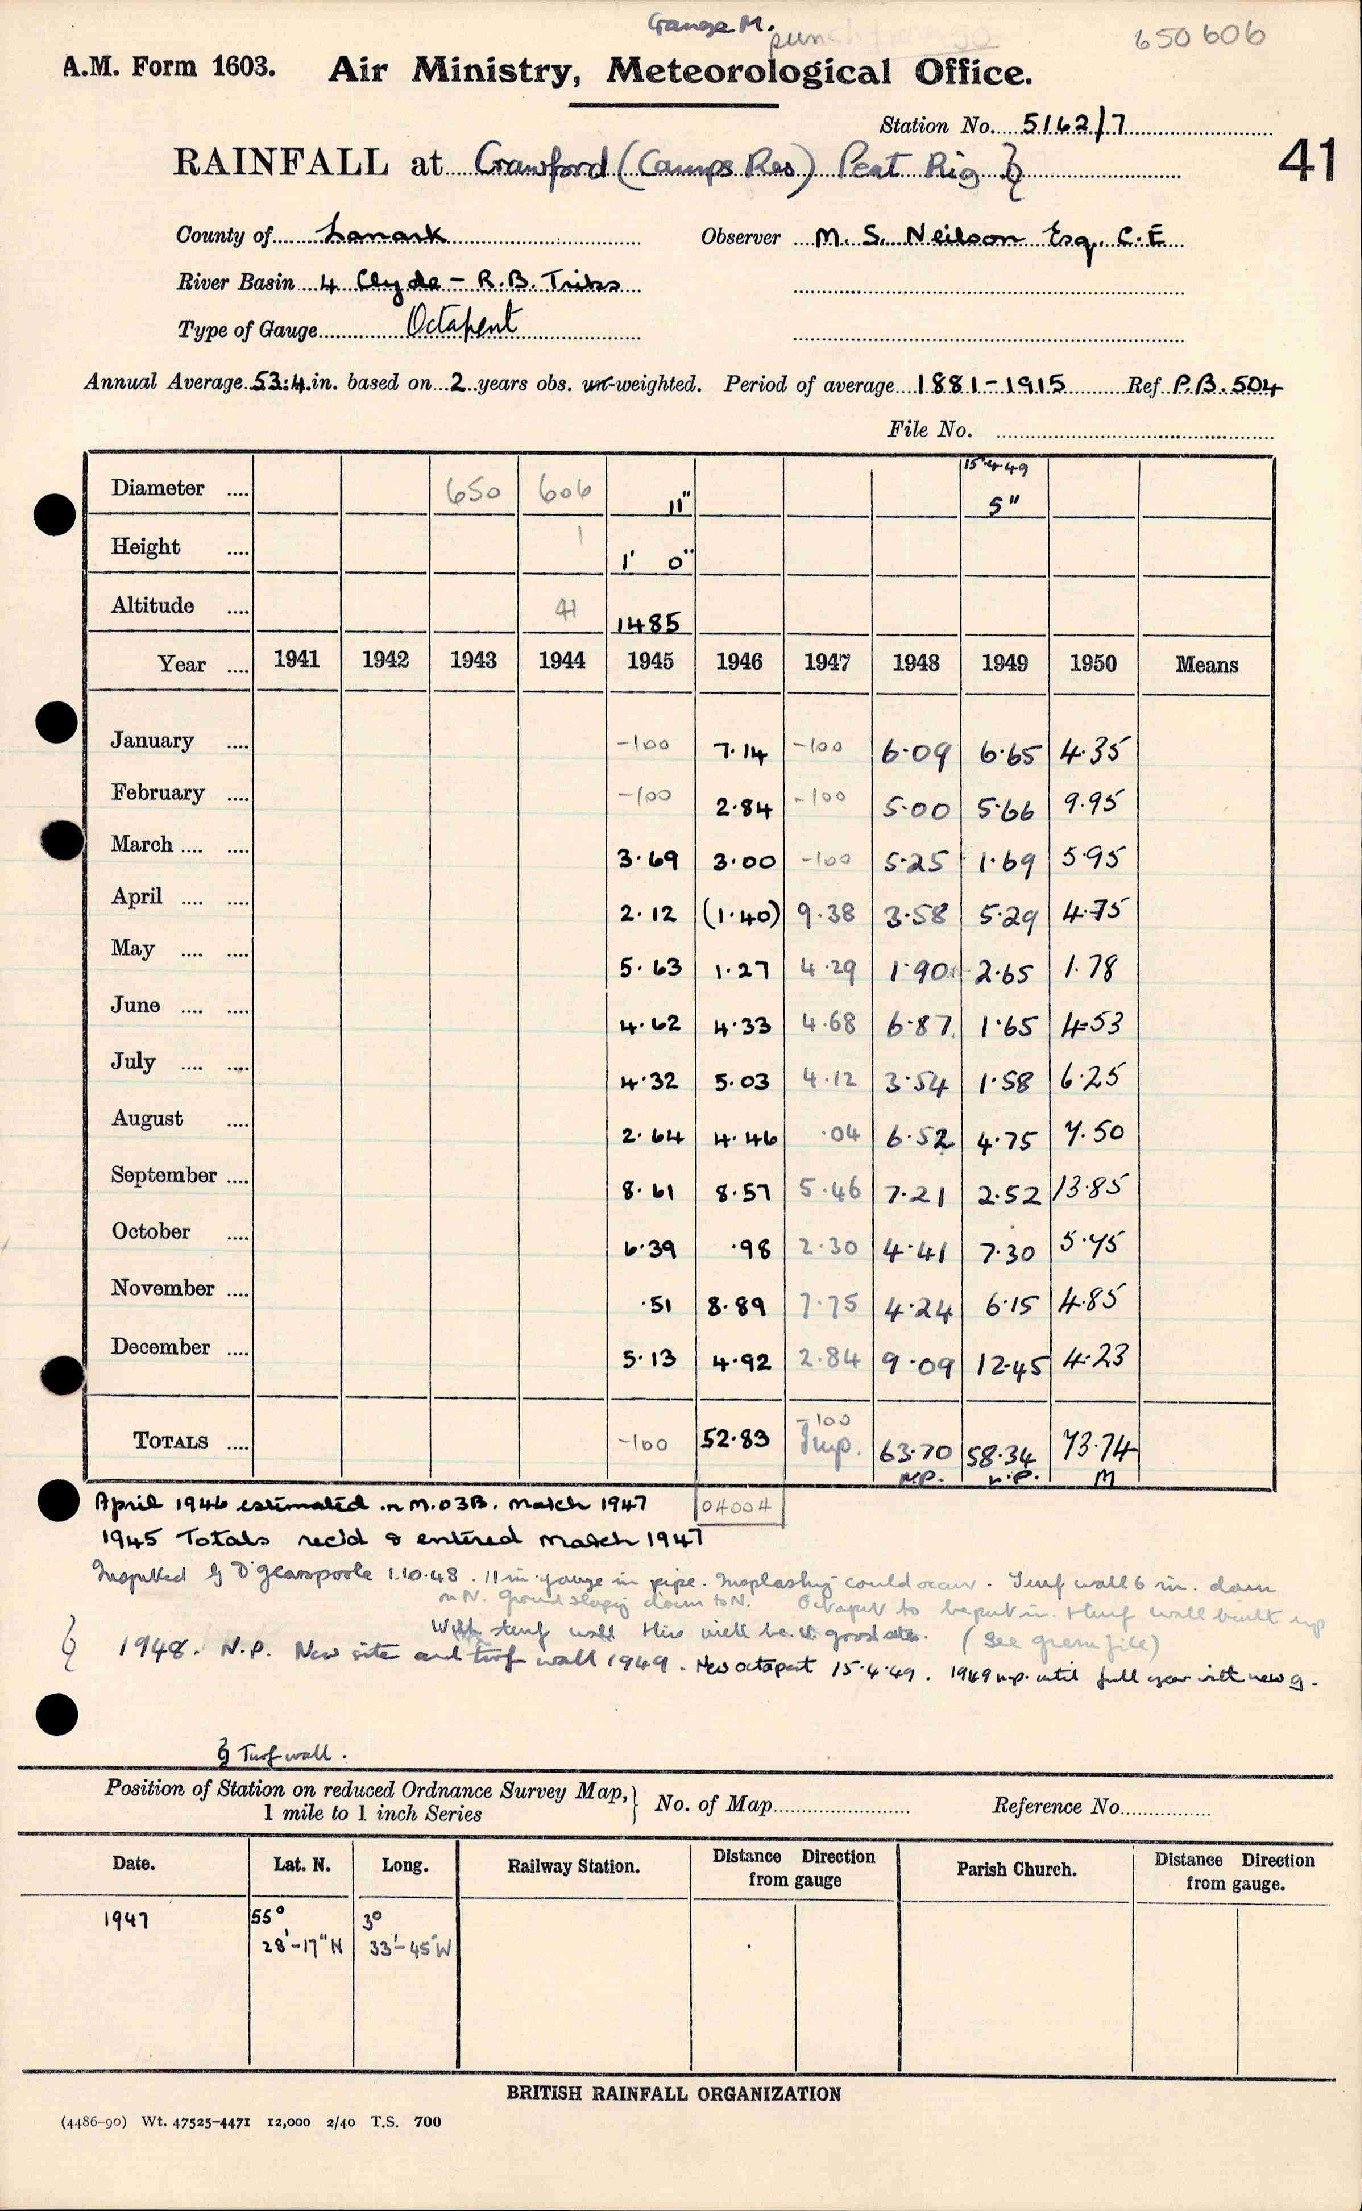 Gauge M.
650606
A.M. Form 1603. Air Ministry, Meteorological Office.
Station No. 5162/7
41
RAINFALL at Crawford (Camps Res) Peat Rig
County of Lanark Observer M. S. Neilson Esq. C.E
River Basin 4 Clyde - R.B. Tribs
Type of Gauge Octapent
Annual Average 53.4 in. based on 2 years obs. un-weighted. Period of average 1881-1915 Ref P.B. 504
File No.
15.4.49
Diameter .... 650 606 11" 5"
Height .... 1 1' 0"
Altitude .... 41 1485
Year .... 1941 1942 1943 1944 1945 1946 1947 1948 1949 1950 Means
January .... -100 7.14 -100 6.09 6.65 4.35
February .... -100 2.84 -100 5.00 5.66 9.95
March .... .... 3.69 3.00 -100 5.25 1.69 5.95
April .... .... 2.12 (1.40) 9.38 3.58 5.29 4.75
May .... .... 5.63 1.27 4.29 1.90 2.65 1.78
June .... .... 4.62 4.33 4.68 6.87 1.65 4.53
July .... .... 4.32 5.03 4.12 3.54 1.58 6.25
August .... 2.64 4.46 .04 6.52 4.75 7.50
September .... 8.61 8.57 5.46 7.21 2.52 13.85
October .... 6.39 .98 2.30 4.41 7.30 5.75
November .... .51 8.89 7.75 4.24 6.15 4.85
December .... 5.13 4.92 2.84 9.09 12.45 4.23
-100
TOTALS .... -100 52.83 Imp. 63.70 58.34 73.74
N.P. N.P. M
April 1946 estimated in M.O3B. March 1947 04004
1945 Totals rec'd & entered March 1947
Inspected by D Glasspoole 1.10.48. 11 in gauge in pipe. Insplashing could occur. Turf wall 6 in. down
on N. Ground sloping down to N. Octapent to be put in. turf wall built up
With turf wall this will be a good site. (See green file)
1948. N.P. New site and turf wall 1949. New octapent 15.4.49. 1949 n.p. until full year with new g.
Turf wall.
Position of Station on reduced Ordnance Survey Map,} No. of Map Reference No.
1 mile to 1 inch Series
Date. Lat. N. Long. Railway Station. Distance Direction from gauge Parish Church. Distance Direction from gauge.
1947 55° 3°
28'-17"N 33'-45"W
BRITISH RAINFALL ORGANIZATION
(4486-90) Wt. 47525-4471 12,000 2/40 T.S. 700